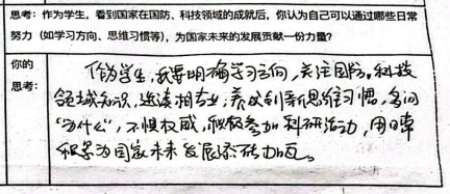 思考：作为学生，看到国家在国防、科技领域的成就后，你认为自己可以通过哪些日常
努力（如学习方向、思维习惯等），为国家未来的发展贡献一份力量？
你的
思考：
作为学生，我要明确学习方向，关注国防、科技
领域知识，选读相关专业，养成创新思维习惯，多问
“为什么”，不惧权威，积极参加科研活动，用日常
积累为国家未来发展添砖加瓦。